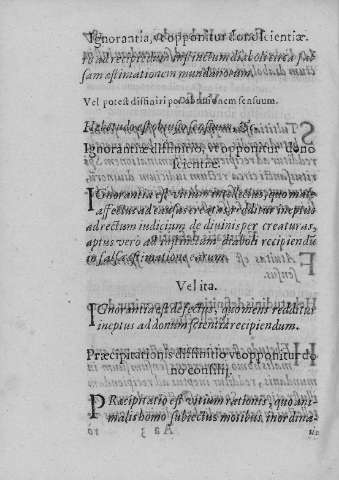 Ignorantia, vt opponitur dono scientiæ.
to ad recipiendum instinctum diaboli circa fal
sam æstimationem mundanorum.
Vel potest diffiniri per abusionem sensuum.
Hebetudo est obtusio sensuum, &c.
Ignorantiæ diffinitio, vt opponitur dono
scientiæ.
IGnorantia est vitium intellectus, quo male
affectus ad causas creatas, redditur ineptus
ad rectum iudicium de diuinis per creaturas,
aptus vero ad instinctum diaboli recipiendū
in falsa æstimatione earum.
Vel ita.
IGnorantia est defectus, quo mens redditur
ineptus ad donum scientiæ recipiendum.
Præcipitationis diffinitio vt opponitur do
no consilij.
PRæcipitatio est vitium rationis, quo ani
malis homo subiectus motibus inordina-